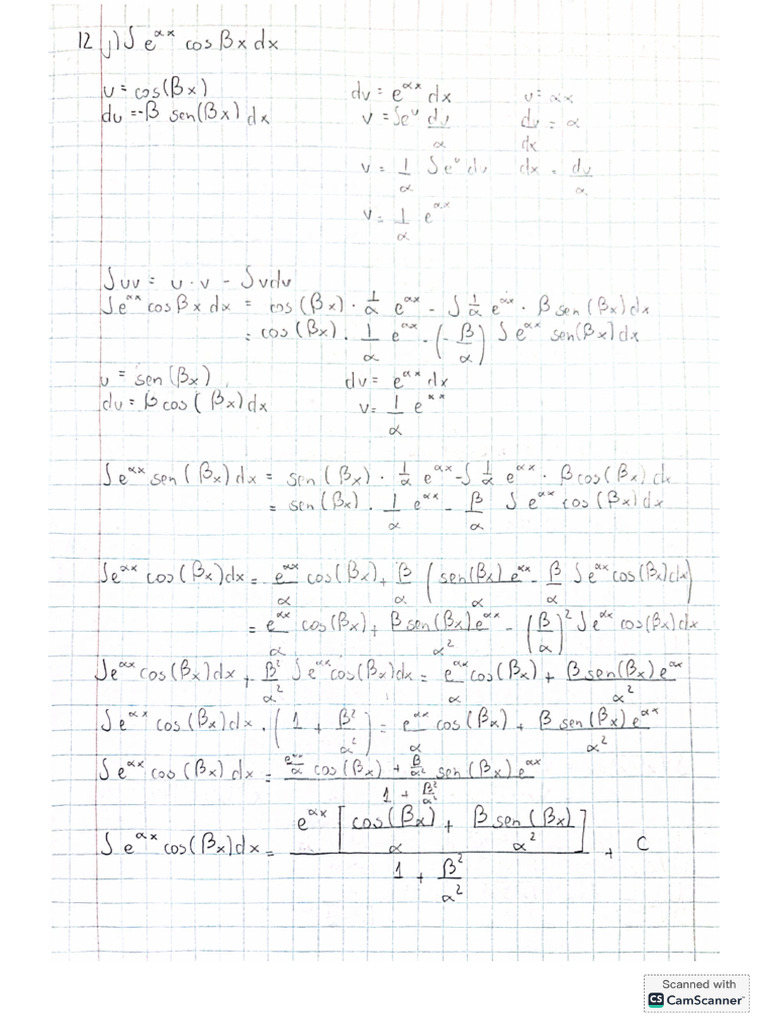 12 j) ∫ e^αx cos βx dx
u = cos(βx) dv = e^αx dx u = αx
du = -β sen(βx) dx v = ∫e^u du/α du/dx = α
v = 1/α ∫e^u du dx = du/α
v = 1/α e^αx
∫uv = u · v - ∫vdu
∫e^αx cos βx dx = cos(βx) · 1/α e^αx - ∫ 1/α e^αx · β sen(βx) dx
= cos(βx) · 1/α e^αx · (-β/α) ∫ e^αx sen(βx) dx
u = sen(βx) dv = e^αx dx
du = β cos(βx) dx v = 1/α e^αx
∫e^αx sen(βx) dx = sen(βx) · 1/α e^αx - ∫ 1/α e^αx · β cos(βx) dx
= sen(βx) · 1/α e^αx - β/α ∫ e^αx cos(βx) dx
∫e^αx cos(βx) dx = e^αx/α cos(βx) + β/α (sen(βx) e^αx/α - β/α ∫e^αx cos(βx) dx)
= e^αx/α cos(βx) + β sen(βx) e^αx/α² - (β/α)² ∫e^αx cos(βx) dx
∫e^αx cos(βx) dx + β²/α² ∫e^αx cos(βx) dx = e^αx/α cos(βx) + β sen(βx) e^αx/α²
∫e^αx cos(βx) dx · (1 + β²/α²) = e^αx/α cos(βx) + β sen(βx) e^αx/α²
∫e^αx cos(βx) dx = (e^αx/α cos(βx) + β/α² sen(βx) e^αx)/(1 + β²/α²)
∫ e^αx cos(βx) dx = e^αx [cos(βx)/α + β sen(βx)/α²]/(1 + β²/α²) + C
Scanned with
CS CamScanner